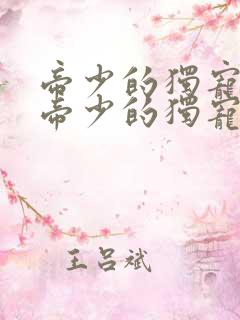 帝少的獨寵
帝少的獨寵
王呂斌